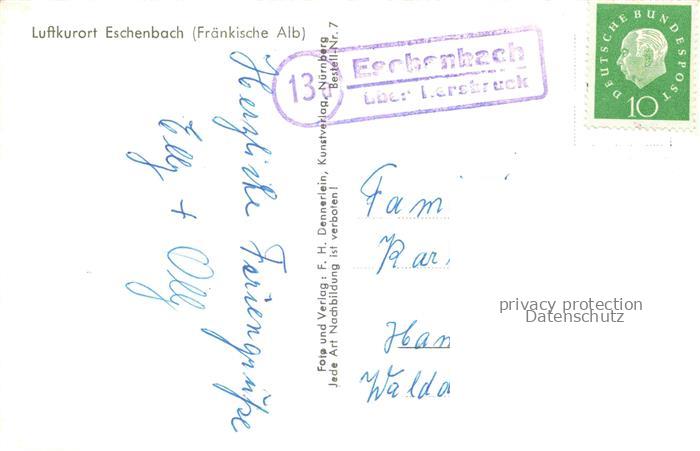 Luftkurort Eschenbach (Fränkische Alb)
Herzliche Feriengrüße
Elly + Olly
Foto und Verlag: F. H. Dennerlein, Kunstverlag, Nürnberg
Bestell-Nr. 7
Jede Art Nachbildung ist verboten!
13a
Eschenbach
über Hersbruck
DEUTSCHE BUNDESPOST
10
Fam
Kar
Han
Walda
privacy protection
Datenschutz